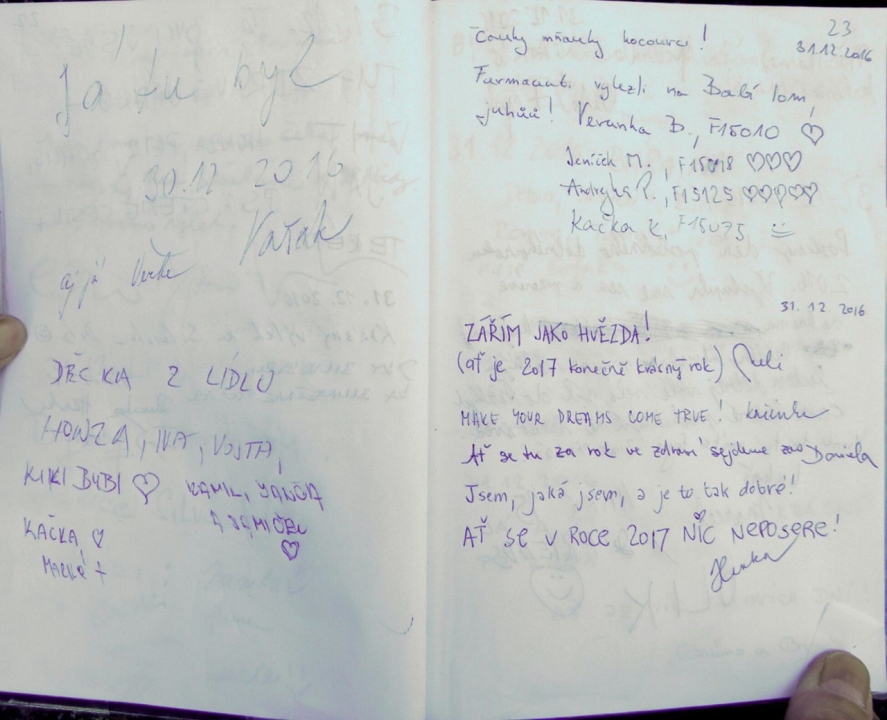 Já tu byl
30.12 2016
Vařák
aj já Verča
DĚCKA Z LIDLU
HONZA, IVA, VOJTA,
KIKI BUBI ♡ KAMIL,
KAČKA ♡
23
31.12.2016
Čauky mňauky kocourci!
Farmaceuti vylezli na Babí lom,
juhůů! Verunka B., F15010 ♡
Jeníček M., F15018 ♡♡♡
P., F15125 ♡♡♡♡♡
Kačka K, F15075
31. 12. 2016
ZÁŘÍM JAKO HVĚZDA!
(ať je 2017 konečně krásný rok)
MAKE YOUR DREAMS COME TRUE!
Ať se tu za rok ve zdraví sejdeme zas Daniela
Jsem, jaká jsem, a je to tak dobré!
AŤ SE V ROCE 2017 NIC NEPOSERE!
Hanka